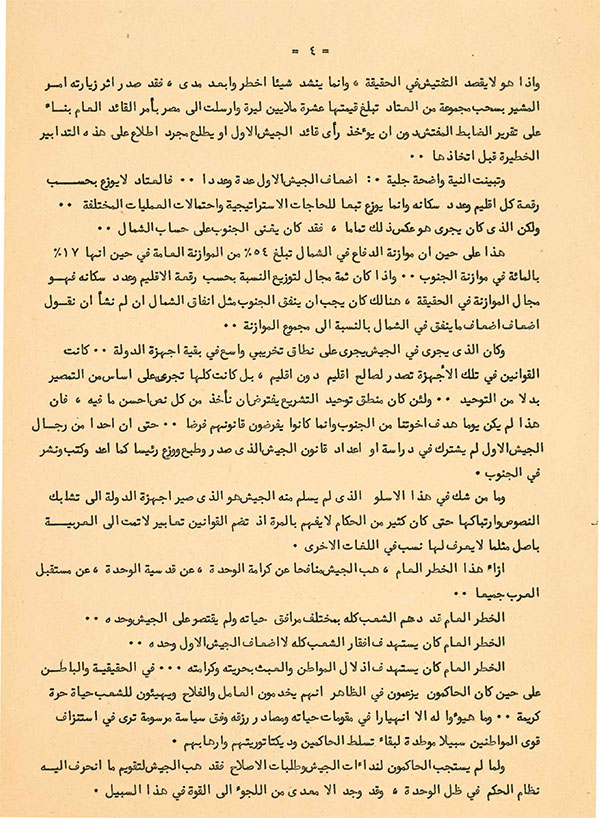 = ٤ =
واذا هو لايقصد التفتيش في الحقيقة ، وانما ينشد شيئا اخطر وابعد مدى ، فقد صدر اثر زيارته امر
المشير بسحب مجموعة من العتاد تبلغ قيمتها عشرة ملايين ليرة وارسلت الى مصر بأمر القائد العام بناء
على تقرير الضابط المفتش دون ان يوءخذ رأى قائد الجيش الاول او يطلع مجرد اطلاع على هذه التدابير
الخطيرة قبل اتخاذها ٠٠
وتبينت النية واضحة جلية ٠: اضعاف الجيش الاول عدة وعددا ٠٠ فالعتاد لايوزع بحسب
رقعة كل اقليم وعدد سكانه وانما يوزع تبعا للحاجات الاستراتيجية واحتمالات العمليات المختلفة ٠٠
ولكن الذى كان يجرى هو عكس ذلك تماما ، فقد كان يفنى الجنوب على حساب الشمال ٠٠
هذا على حين ان موازنة الدفاع في الشمال تبلغ ٥٤٪ من الموازنة العامة في حين انها ١٧٪
بالمائة في موازنة الجنوب ٠٠ واذا كان ثمة مجال لتوزيع النسبة بحسب رقعة الاقليم وعدد سكانه فهو
مجال الموازنة في الحقيقة ، هنالك كان يجب ان ينفق الجنوب مثل انفاق الشمال ان لم نشأ ان نقول
اضعاف اضعاف ماينفق في الشمال بالنسبة الى مجموع الموازنة ٠٠
وكان الذى يجرى في الجيش يجرى على نطاق تخريبي واسع في بقية اجهزة الدولة ٠٠ كانت
القوانين في تلك الأجهزة تصدر لصالح اقليم دون اقليم ، بل كانت كلها تجرى على اساس من التمصير
بدلا من التوحيد ٠٠ ولئن كان منطق توحيد التشريع يفترض ان نأخذ من كل نص احسن ما فيه ، فان
هذا لم يكن يوما هدف اخوتنا من الجنوب وانما كانوا يفرضون قانونهم فرضا ٠٠ حتى ان احدا من رجال
الجيش الاول لم يشترك في دراسة او اعداد قانون الجيش الذى صدر وطبع ووزع رئيسا كما اعد وكتب ونشر
في الجنوب ٠
وما من شك في هذا الاسلو الذى لم يسلم منه الجيش هو الذى صير اجهزة الدولة الى تشابك
النصوص وارتباكها حتى كان كثير من الحكام لايفهم بالمرة اذ تضم القوانين تعابير لاتمت الى العربية
باصل مثلما لايعرف لها نسب في اللغات الاخرى ٠
ازاء هذا الخطر العام ، هب الجيش منافحا عن كرامة الوحدة ، عن قدسية الوحدة ، عن مستقبل
العرب جميعا ٠٠
الخطر العام قد دهم الشعب كله بمختلف مرافق حياته ولم يقتصر على الجيش وحده ٠٠
الخطر العام كان يستهدف افقار الشعب كله لا اضعاف الجيش الاول وحده ٠٠
الخطر العام كان يستهدف اذلال المواطن والعبث بحريته وكرامته ٠٠٠ في الحقيقية والباطن
على حين كان الحاكمون يزعمون في الظاهر انهم يخدمون العامل والفلاح ويهيئون للشعب حياة حرة
كريمة ٠٠ وما هيوءوا له الا انهيارا في مقومات حياته ومصادر رزقه وفق سياسة مرسومة ترى في استنزاف
قوى المواطنين سبيلا موطدة لبقاء تسلط الحاكمين وديكتاتوريتهم وارهابهم ٠
ولما لم يستجب الحاكمون لنداءات الجيش وطلبات الاصلاح فقد هب الجيش لتقويم ما انحرف اليه
نظام الحكم في ظل الوحدة ، وقد وجد الا معدى من اللجوء الى القوة في هذا السبيل ٠